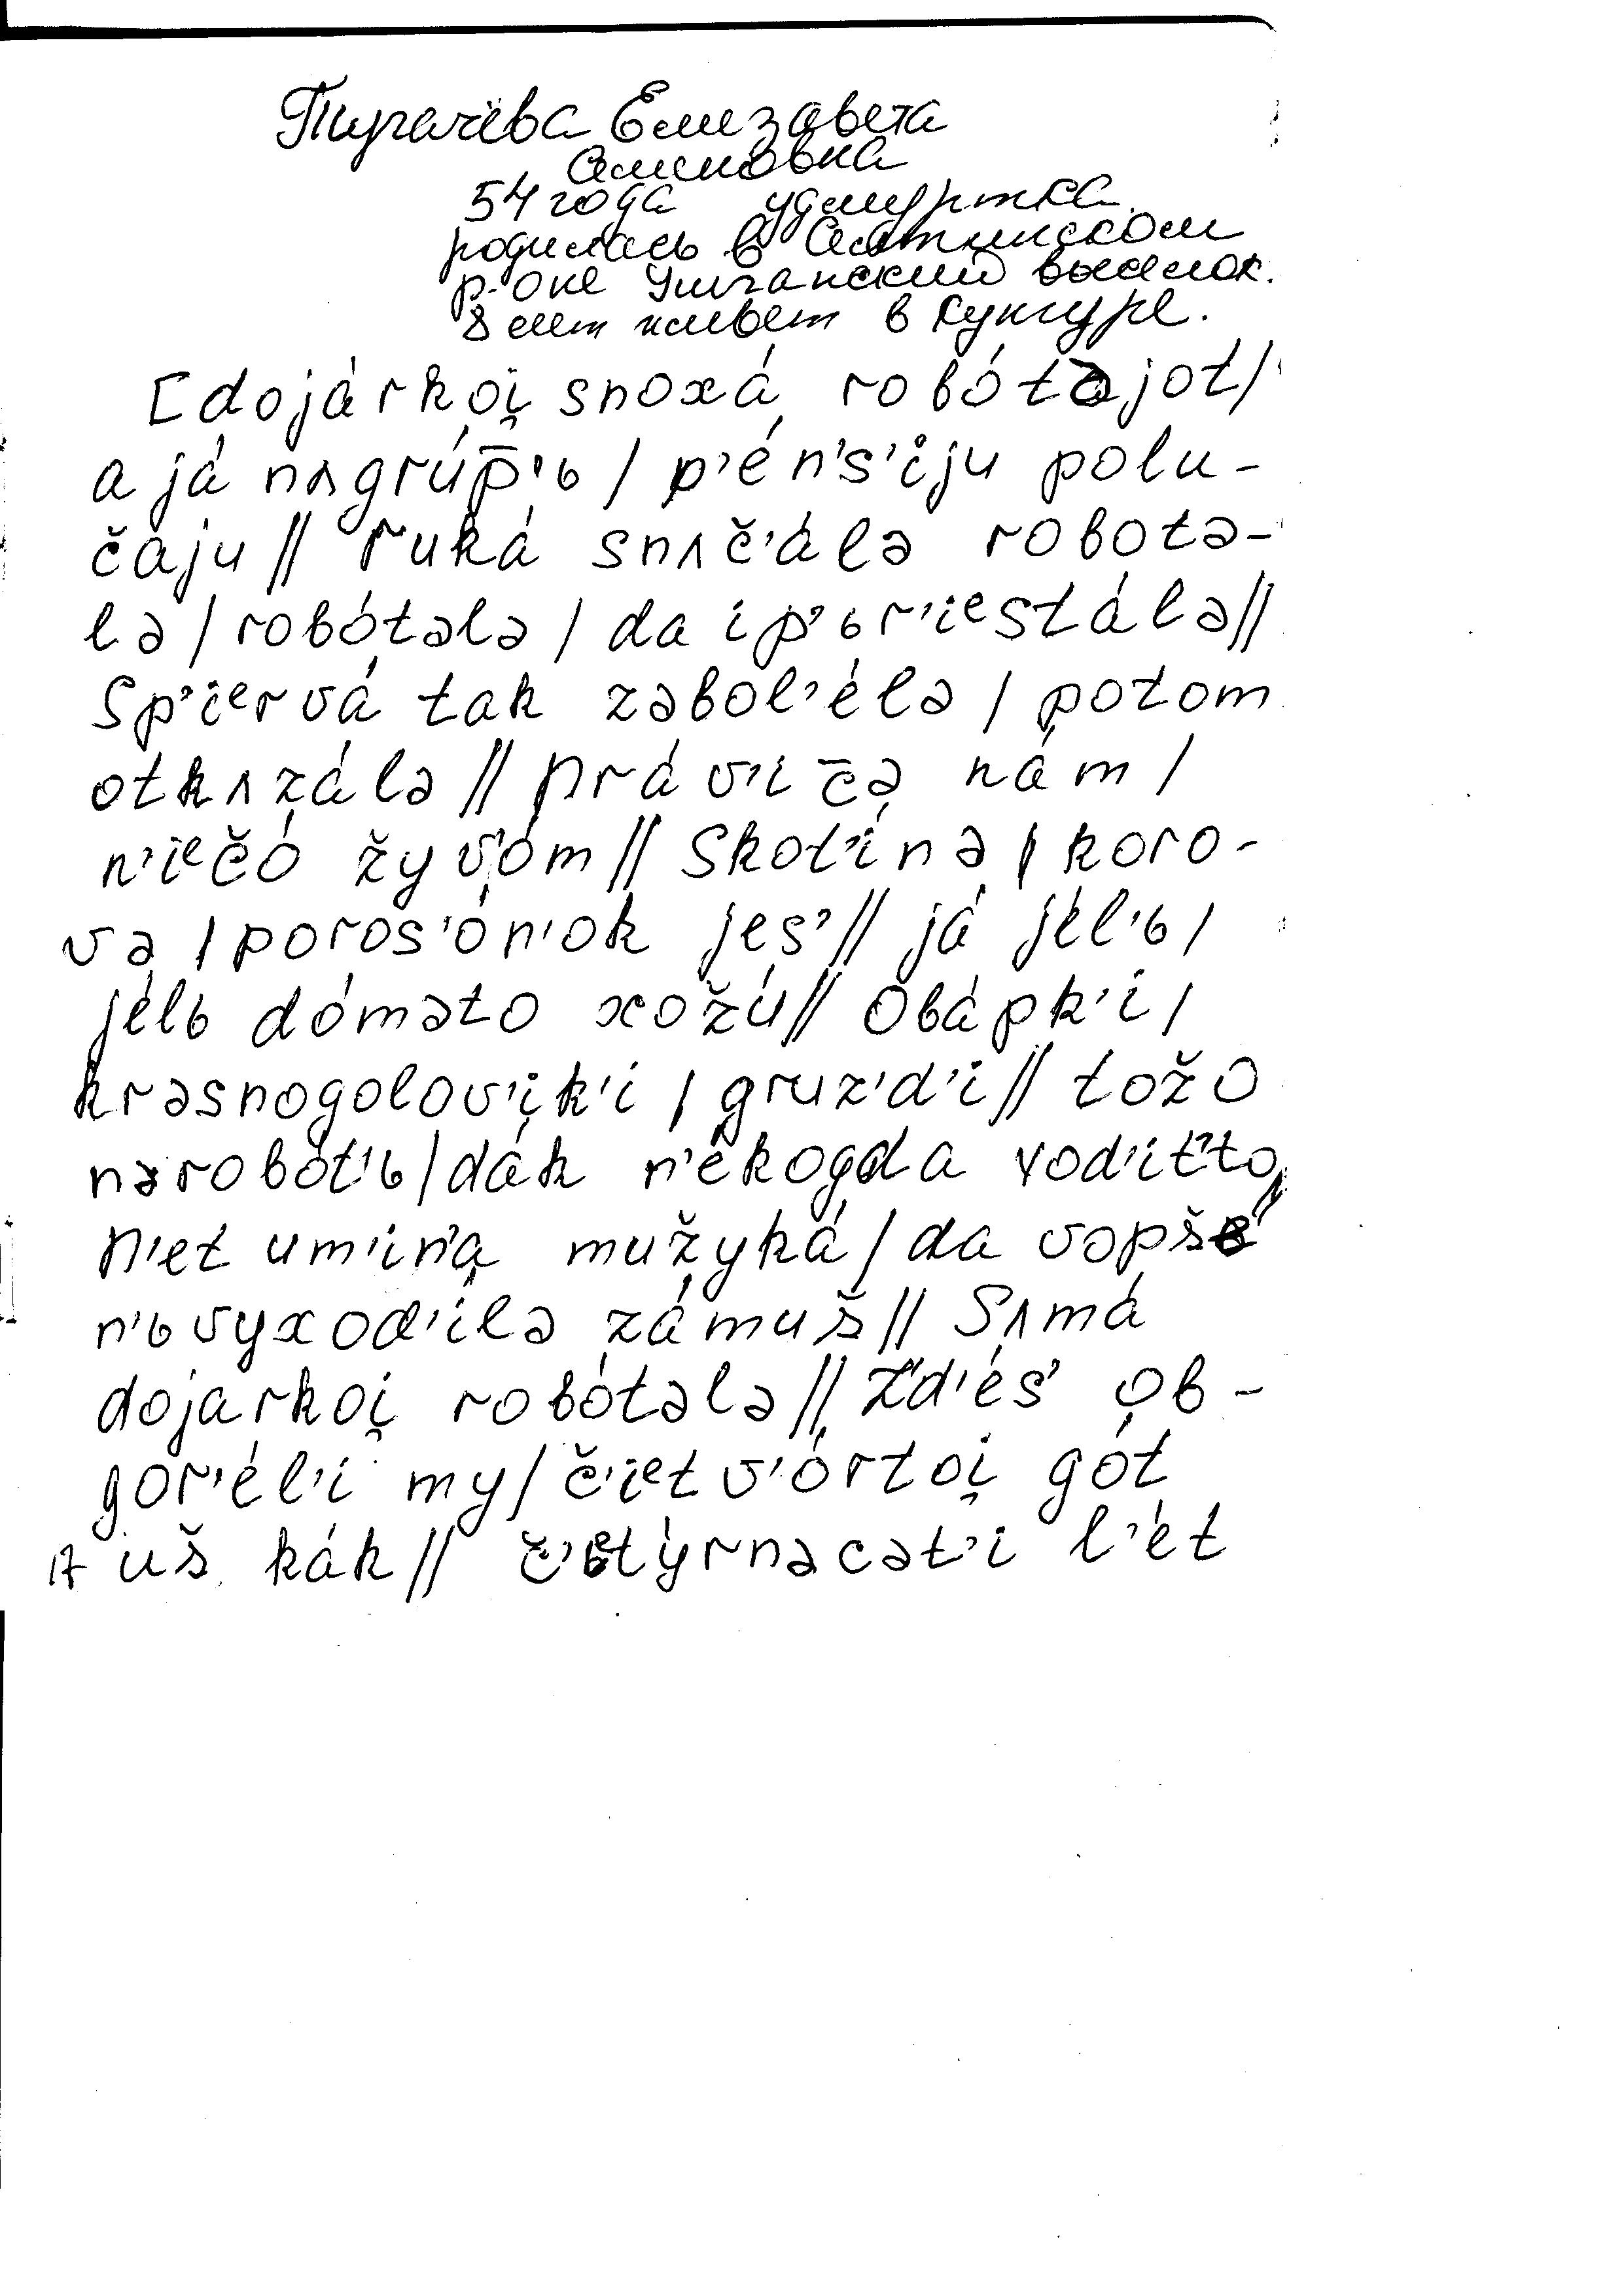 Пугачёва Елизавета
Семёновна
54 года удмуртка.
родилась в Селтинском
р-оне Узиганский выселок.
8 лет живет в Кунгуре.
[dojárkoi̯ snoxá robótəjot/
a já nʌgrúp̄'ь / p'én's'iju polu-
čáju // ruká snʌč'álə robotə-
lə / robótələ / da i p'ьr'iestálə//
Sp'iervá tak zəbol'élə / potom
otkʌzálə // práv'ic̄ə nám /
n'iečó žyv'óm // Skot'ínə / koro-
və / poros'ón'ok jes'// já jél'ь /
jélь dóməto xožú // Obápk'i /
krəsnogolov'ik'i / gruz'd'i // tožo
nərobót'ь / dák n'ékogda vod'ít'to/
N'et um'in'a mužyká / da vopše
n'ьvyxod'ílə zámuš // Sʌmá
dojarkoi̯ robótələ // Z'd'és' ob-
gor'él'i my / č'ietv'órtoi̯ gót
uš kák // č'ьtýrnəcət'i l'ét